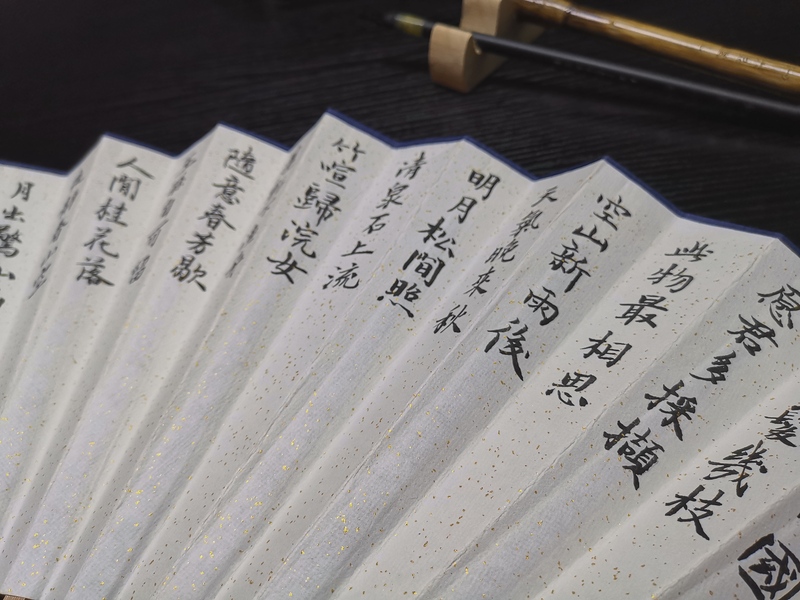 國
發幾枝
愿君多採擷
此物最相思
空山新雨後
天氣晚來秋
明月松間照
清泉石上流
竹喧歸浣女
隨意春芳歇
人間桂花落
月出驚山